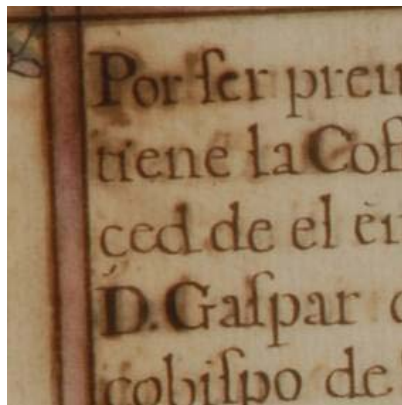 Por ſer preu
tiene la Cof
çed de el èn
D. Gaſpar
cobiſpo de